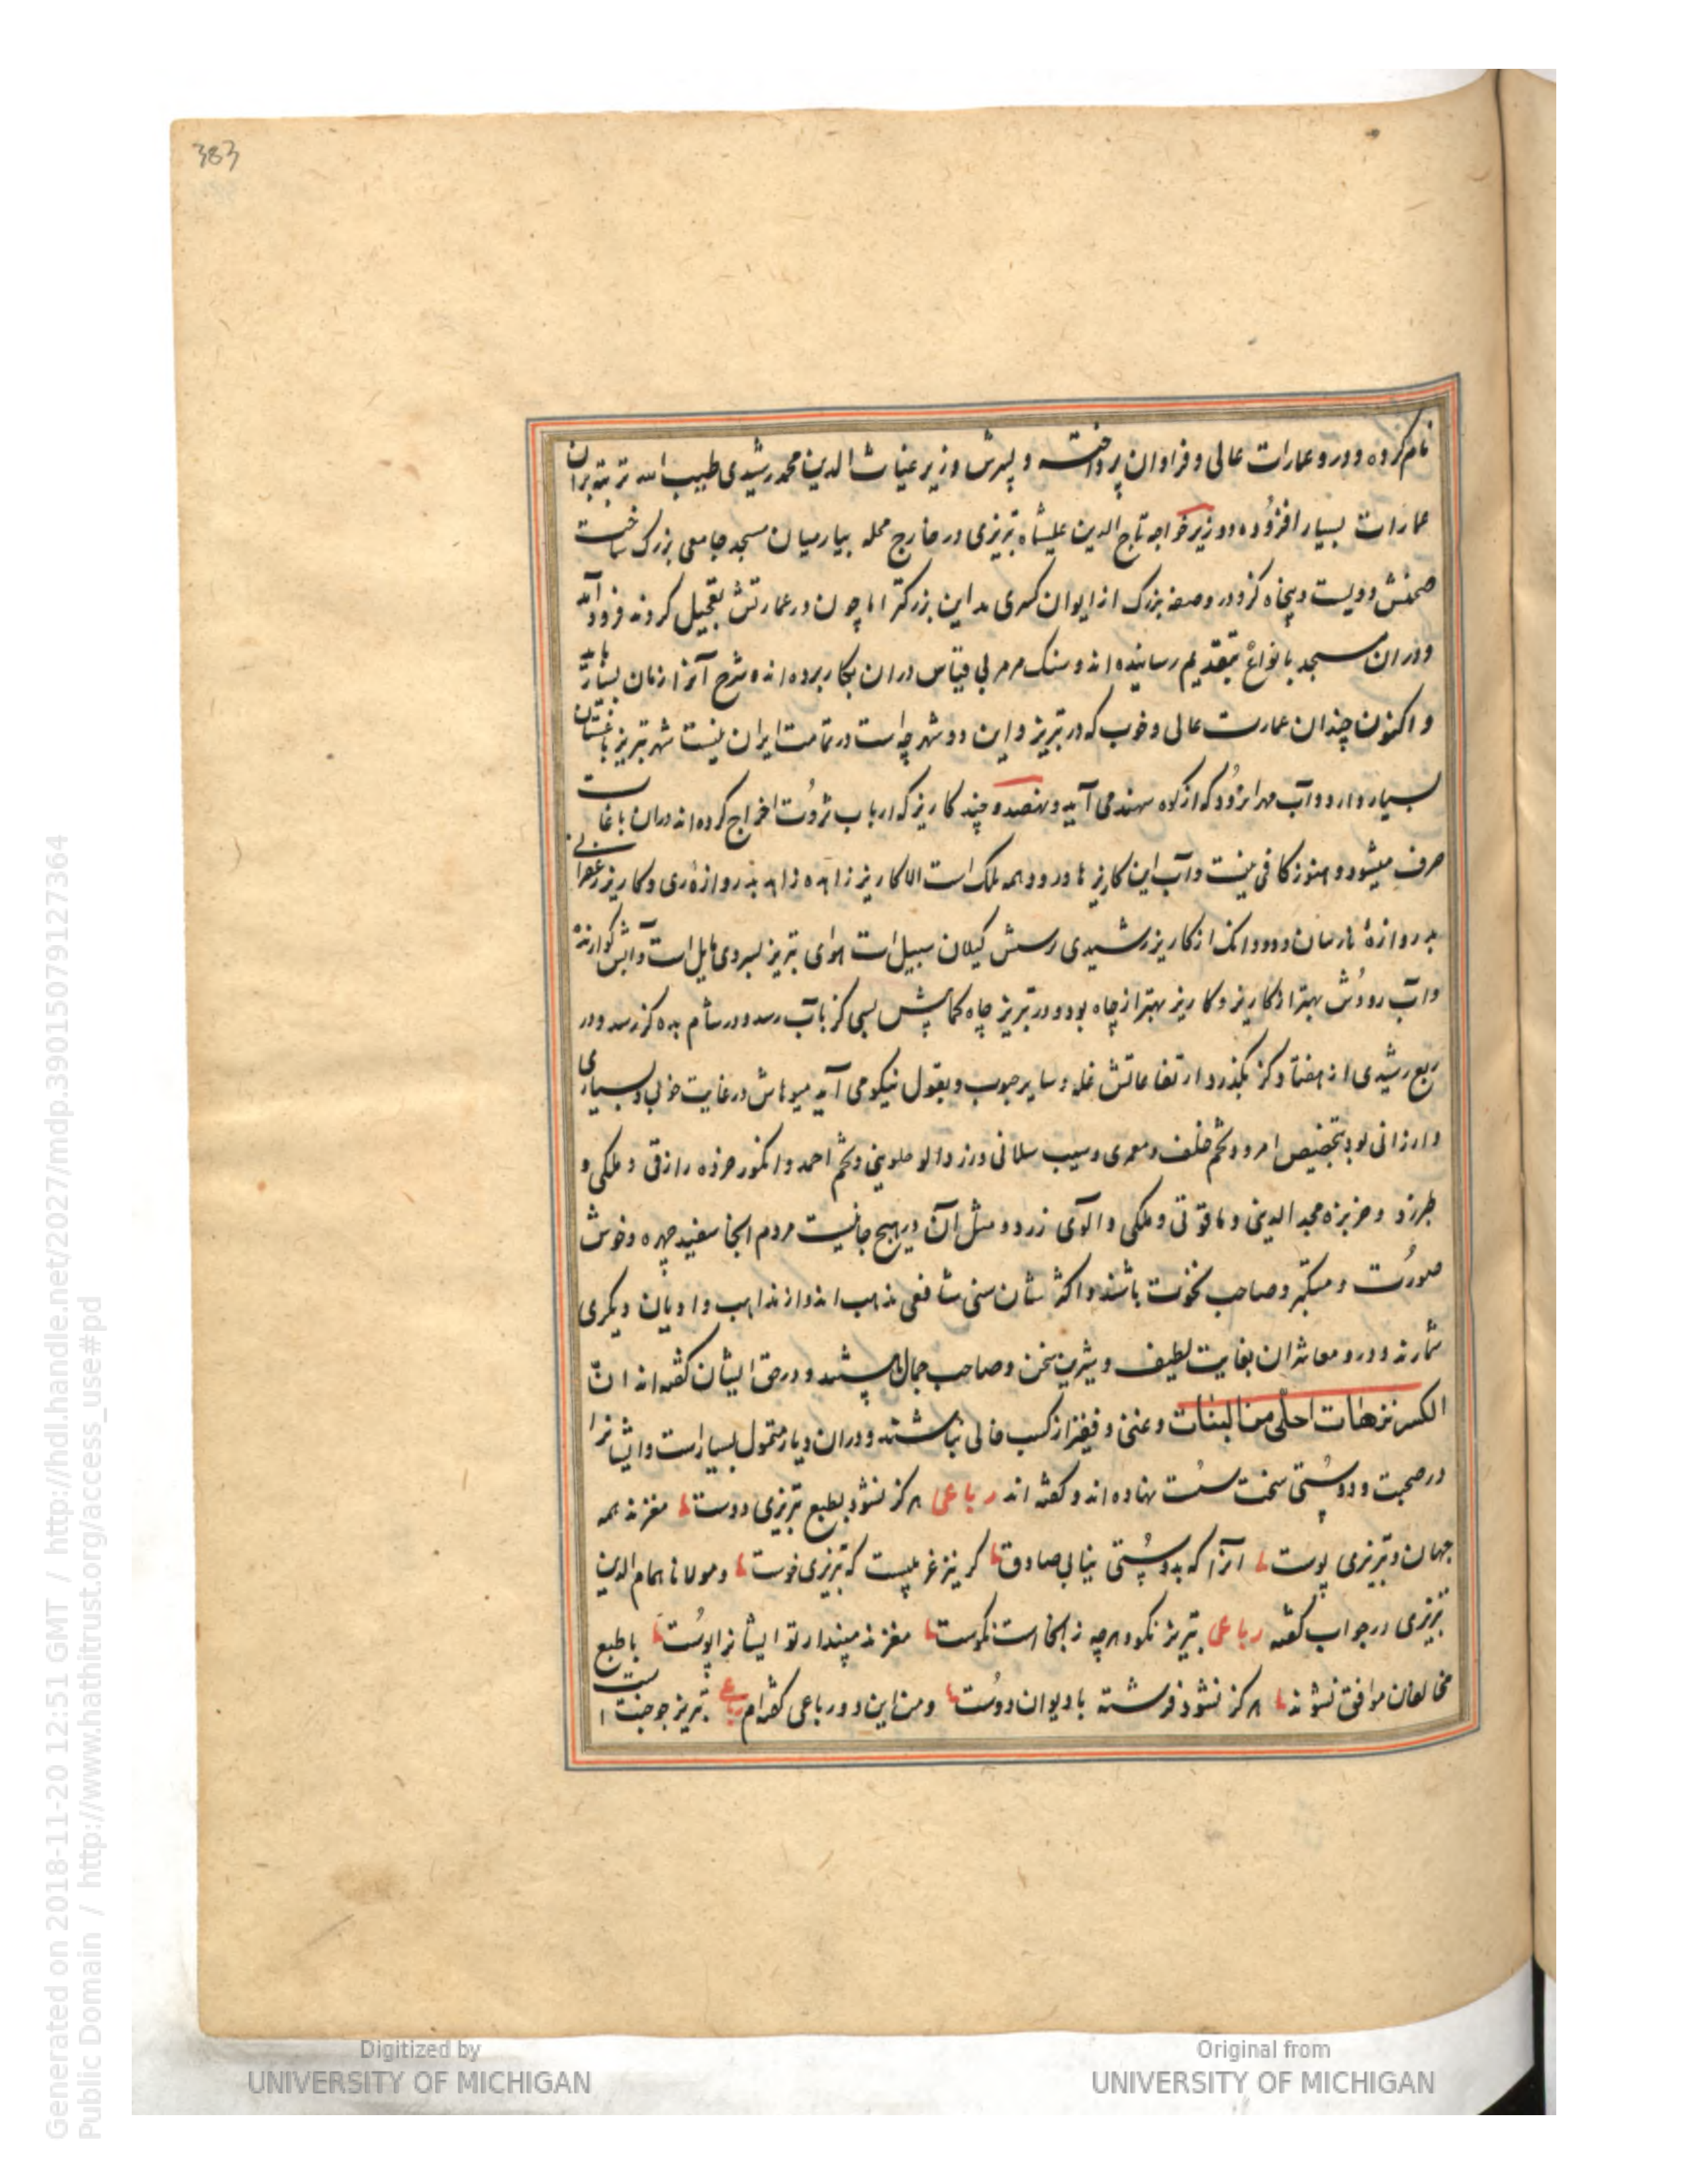 383
نام کرده و درو عمارات عالی و فراوان پرداخت و پسرش وزیر غیاث الدین محمد رشیدی طیب الله تربته بران
عمارات بسیار افزوده و وزیر خواجه تاج الدین علیشاه تبریزی در خارج محله بیارمیان مسجد جامعی بزرک ساخت
صحنش دویست و پنجاه کز و در و صفه بزرک از ایوان کسری بمداین بزرکتر اما چون در عمارتش تعجیل کردند فرود آمد
و دران مسجد بانواع بتقدیم رسانیده اند و سنک مرمر بی قیاس دران بکار برده اند و شرح آنرا زمان بسیار باید
و اکنون چندان عمارت عالی و خوب که در تبریز و این دو شهرچه است در تمامت ایران نیست شهر تبریز باغستان
بسیار دارد و آب مهرانرود که از کوه سهند می آید و نهصد و چند کاریز که ارباب ثروت اخراج کرده اند دران باغات
صرف میشود و هنوز کافی نیست و آب این کاریزها و رود همه ملک است الا کاریز زاهده زاهد بدروازه ری و کاریز زعفرانی
بدروازه نارمیان و دو دانک از کاریز رشیدی رسش کیلان سبیل است هوای تبریز بسردی مایل است و آبش کوارنده
و آب رودش بهتر از کاریز و کاریز بهتر از چاه بود و در تبریز چاه کمابیش بسی کز بآب رسد و در شام بده کز رسد و در
ربع رشیدی از هفتاد کز بکذرد ارتفاعاتش غله و سایر حبوب و بقول نیکو می آید میوهاش در غایت خوبی و بسیاری
و ارزانی بود بتخصیص امرود تخم خلف و سیب سلانی و زردالو حلوینی و تخم احمد و انکور خرده رازقی و ملکی و
طبرزد و خربزه مجد الدینی و یاقوتی و ملکی و آلوی زرد و مثل آن در هیچ جا نیست مردم آنجا سفید چهره و خوش
صورت و متکبر و صاحب نخوت باشند و اکثرشان سنی شافعی مذهب اند و از مذاهب و ادیان دیکری
شمارند و درو معاشران بغایت لطیف و شیرین سخن و صاحب جمال هستند و در حق ایشان کفته اند ان
الکسر نزهات احلی من البنات و غنی و فقیر از کسب خالی نباشند و دران دیار متمول بسیار است و ایشانرا
در صحبت و دوستی سخت سست نهاده اند و کفته اند رباعی هرکز نشود بطبع تبریزی دوست مغزند همه
جهان و تبریزی پوست انرا که بدوستی نیابی صادق کر نیز غریبست که تبریزی خوست و مولانا همام الدین
تبریزی در جواب کفته رباعی تبریز نکو و هرچه ز انجاست نکوست مغزند مپندار تو ایشانرا پوست با طبع
مخالفان موافق نشوند هرکز نشود فرشته با دیوان دوست و من این دو رباعی کفته ام رباعی تبریز جو جنت است
Digitized by
UNIVERSITY OF MICHIGAN
Original from
UNIVERSITY OF MICHIGAN
Generated on 2018-11-20 12:51 GMT / http://hdl.handle.net/2027/mdp.39015079127364
Public Domain / http://www.hathitrust.org/access_use#pd